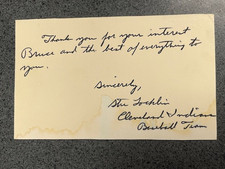 Thank you for your interest
Bruce and the best of everything to
you.
Sincerely,
Stu Locklin
Cleveland Indians
Baseball Team